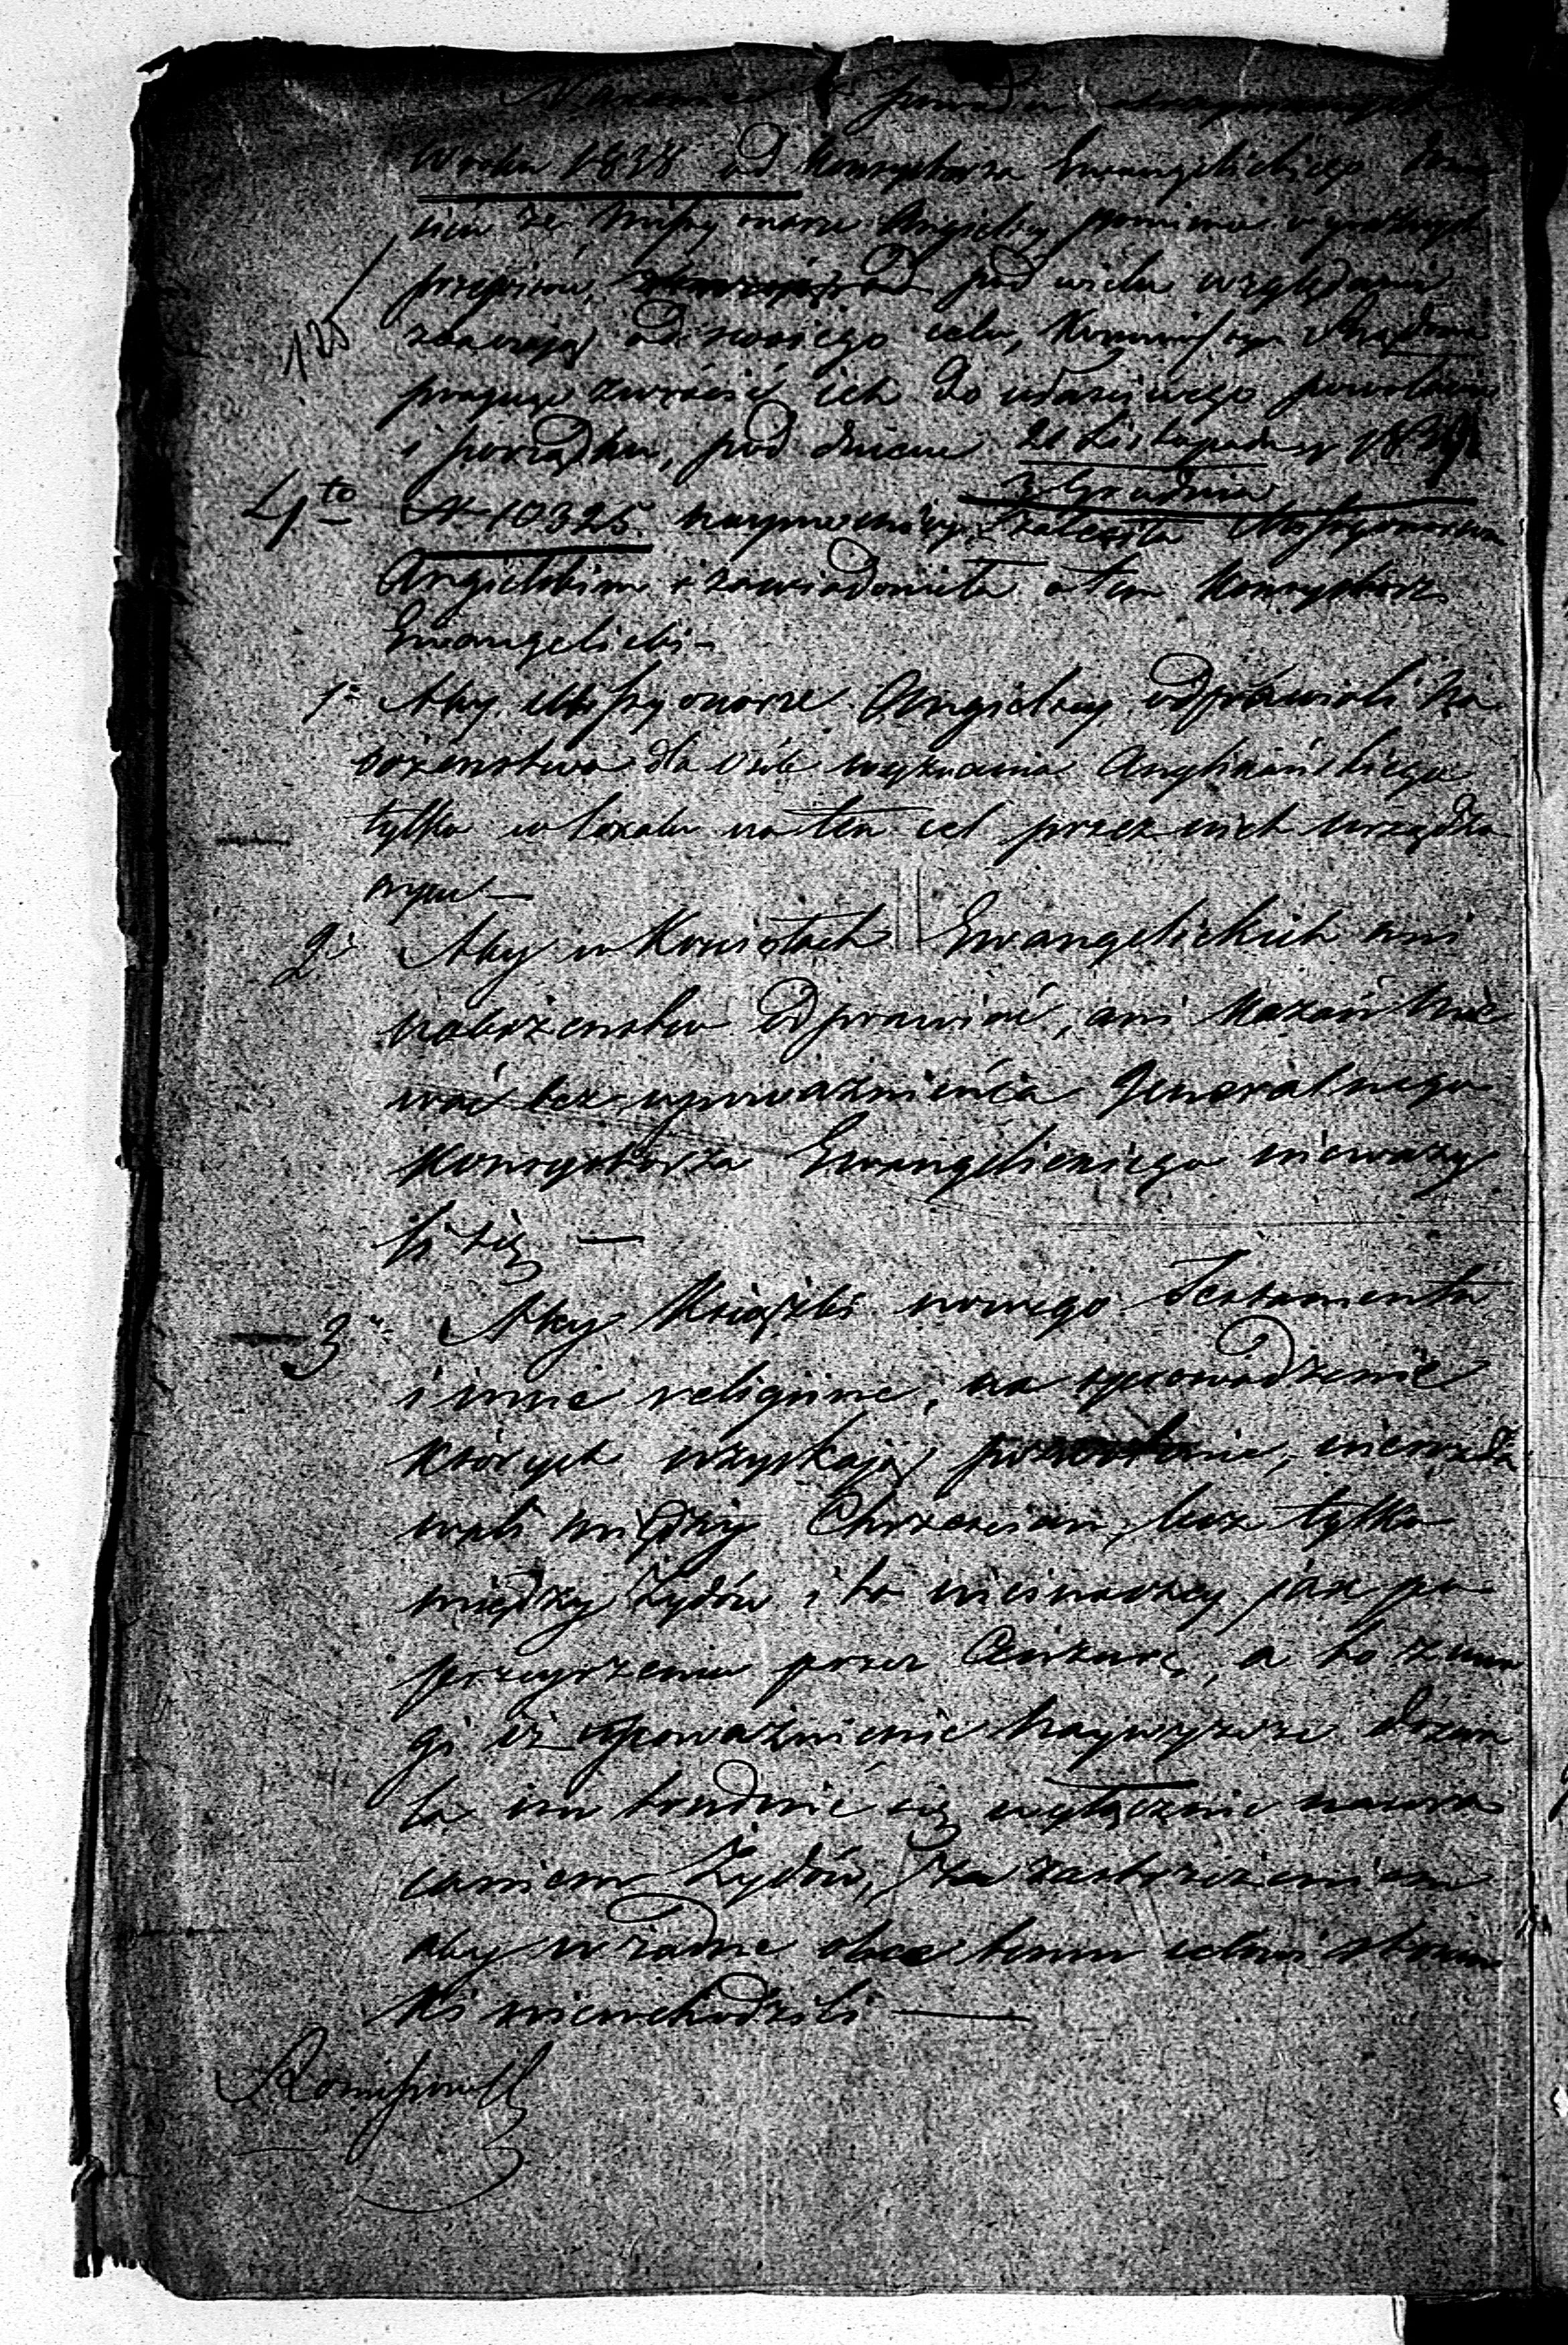 w roku 1838 od Konsystorza Ewangelickiego
że Missyonarze Angielscy pomimo
przepisów, pod wielu względami
zbaczają od swoiego celu, Kommissya Rządowa
pragnąc zwrócić ich do właściwego powołania
120
i porządku, pod dniem 21 Listopada r 1839
3 Grudnia
4to N 10325. zaleciła Missyonarzom
Angielskim i zawiadomiła o tem Konsystorz
Ewangelicki –
1° Aby Missyonarze Angielscy odprawiali Na
bożeństwa dla Osób wyznania Anglikańskiego
tylko w lokalu na ten cel przez nich urządzo
nym –
2° Aby w Kościołach Ewangelickich ani
nabożeństw odprawiać, ani Kazań mie
wać bez upoważnienia Generalnego
Konsystorza Ewangelickiego nieważy
li się –
3° Aby Książki nowego Testamentu
i inne religijne, na sprowadzenie
których uzyskają pozwolenie, nierozda
wali między Chrześcian, lecz tylko
między Żydów i to nieinaczey jak po
przeyrzeniu przez Cenzurę, a to z uwa
gi iż upoważnienie Naywyższe dozwa
la im trudnić się wyłącznie nawra
caniem Żydów, za zastrzeżeniem
aby w żadne obce temu celowi stosun
ki niewchodzili –